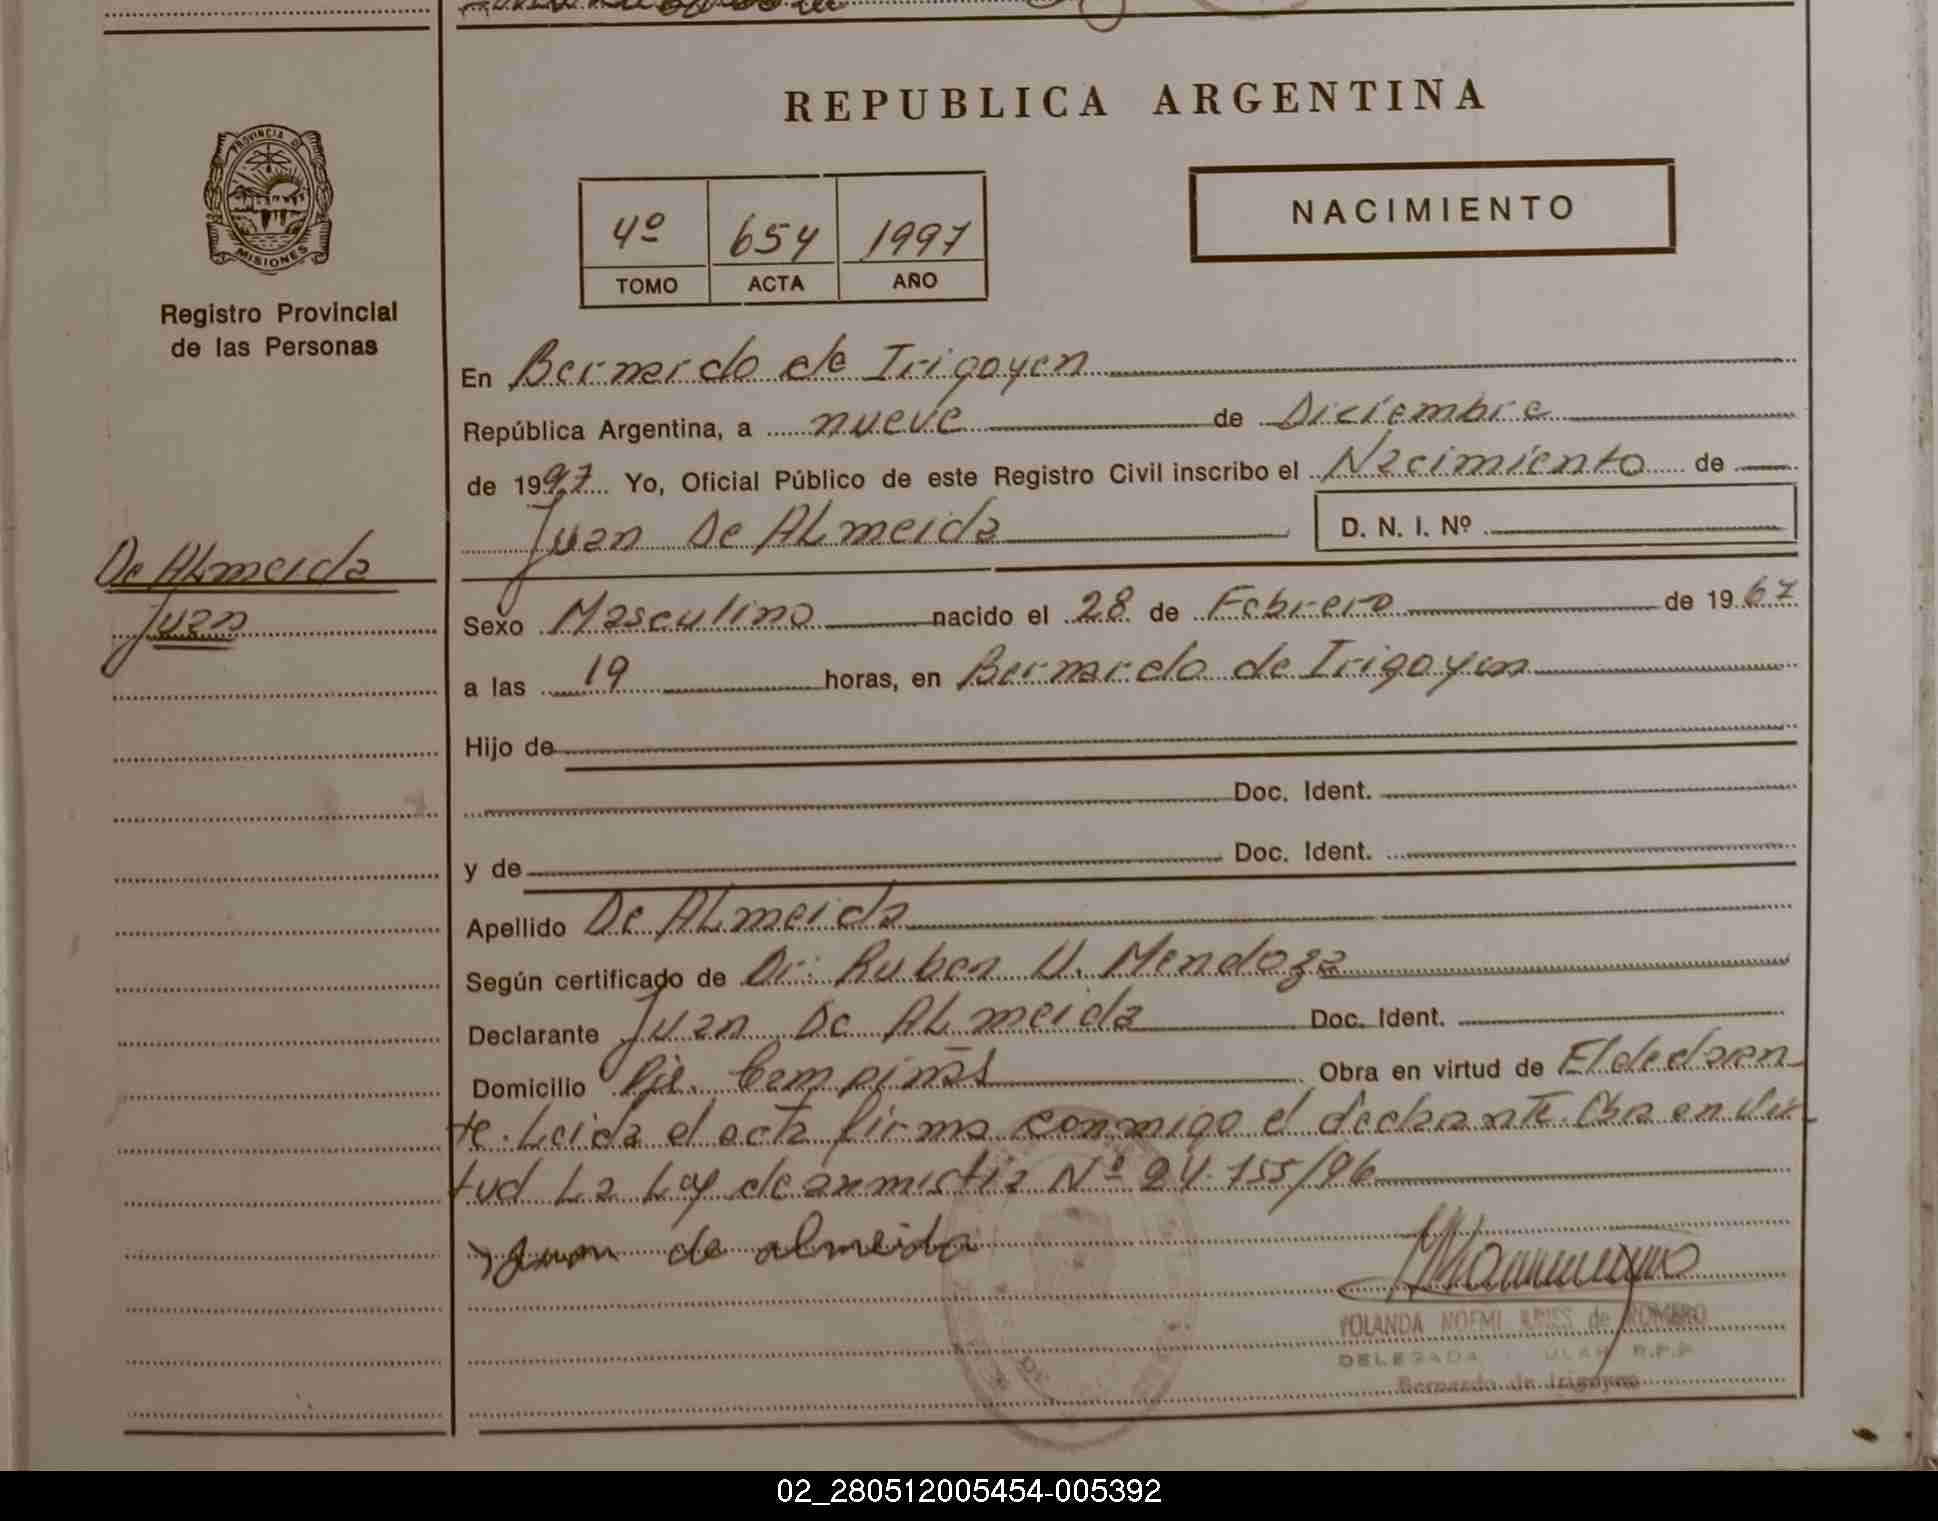 REPUBLICA ARGENTINA
PROVINCIA DE
MISIONES
Registro Provincial
de las Personas
4º 654 1997
TOMO ACTA AÑO
NACIMIENTO
En Bernardo de Irigoyen
República Argentina, a nueve de Diciembre
de 1997 Yo, Oficial Público de este Registro Civil inscribo el Nacimiento de
Juan De ALmeida D. N. I. Nº
De ALmeida
Juan
Sexo Masculino nacido el 28 de Febrero de 1967
a las 19 horas, en Bernardo de Irigoyen
Hijo de
Doc. Ident.
y de Doc. Ident.
Apellido De ALmeida
Según certificado de Dr. Ruben U. Mendoza
Declarante Juan De ALmeida Doc. Ident.
Domicilio Pje. Campinas Obra en virtud de El declaran-
te. Leida el acta firma conmigo el declarante. Obra en vir-
tud La Ley de anmistia Nº 24.755/96
Juan de almeida
YOLANDA NOEMI de ROMERO
DELEGADA R.P.P
Bernardo de Irigoyen
02_280512005454-005392